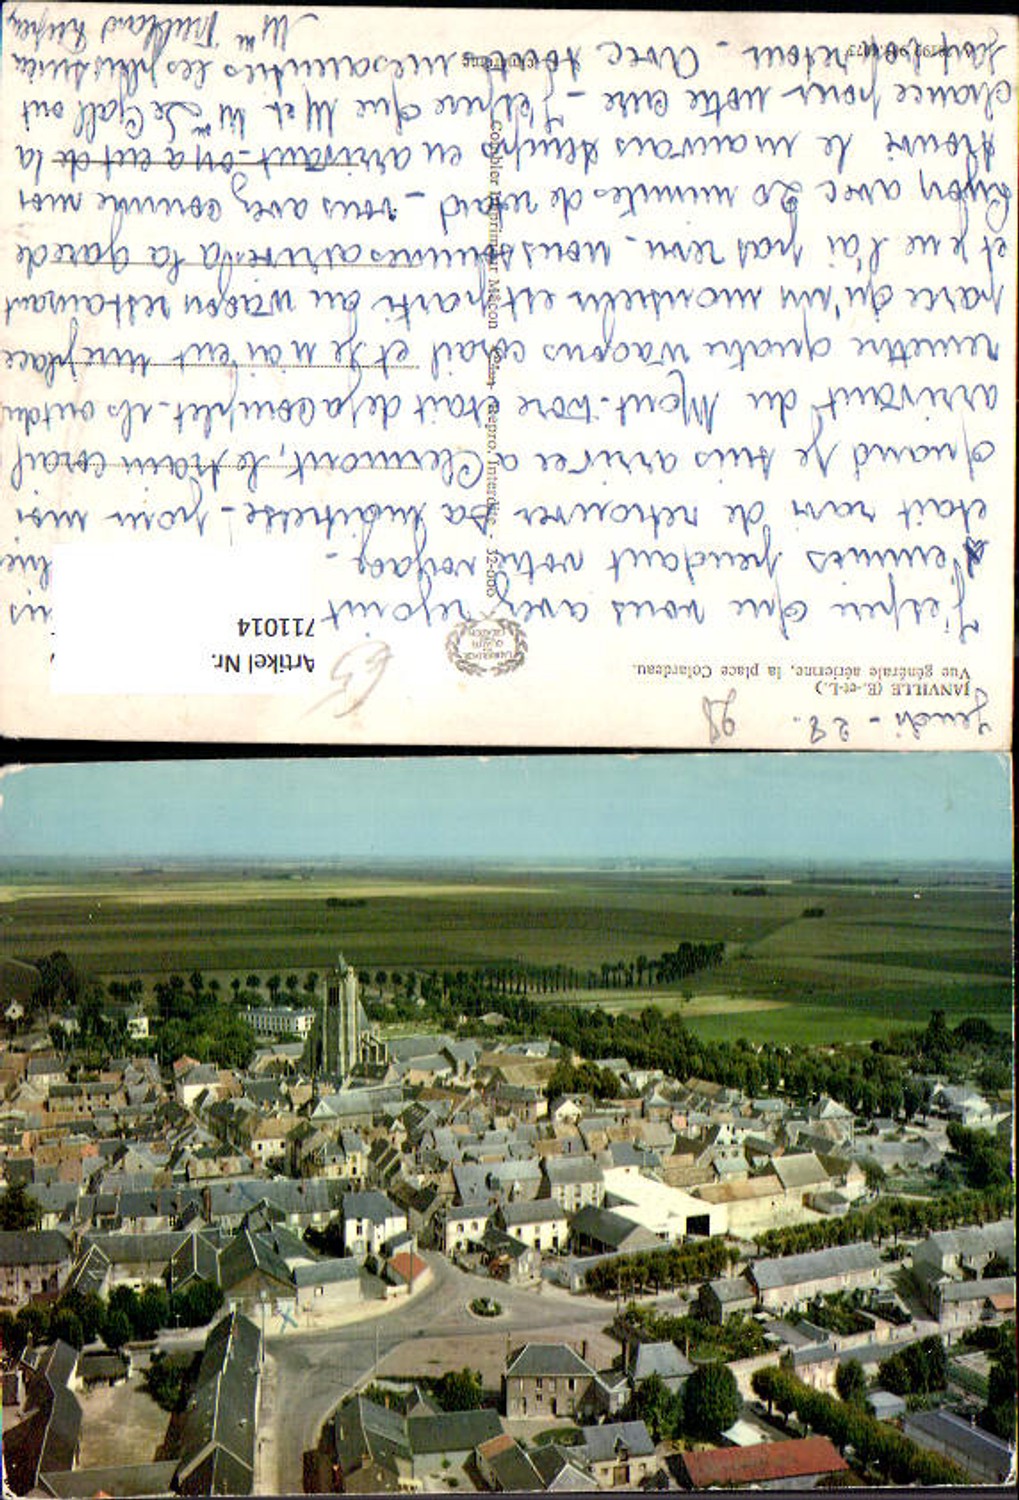 Jeudi - 28.
98
JANVILLE (E.-et-L.)
Vue générale aérienne, la place Colardeau.
Artikel Nr.
711014
J'espère que vous avez rejoint
d'ennuis pendant votre voyage -
était ravi de retrouver sa maitresse - pour moi
quand je suis arrivée a Clermont, le train corail
arrivant du Mont-Dore était deja complet - ils ont du
remettre quatre wagons corail et je n'ai eut une place
parce qu'un monsieur est parti au wagon restaurant
et je ne l'ai pas revu - nous sommes arrives a la gare de
Lyon avec 20 minutes de retard - vous avez comme moi
trouvé le mauvais temps en arrivant - on a eut de la
chance pour notre cure - J'espère que M et Mme Le Gall ont
fait bon retour - Avec toutes mes amitiés les plus
Mme
Combier Imprimeur Mâcon
Repro. Interdite - 32-000